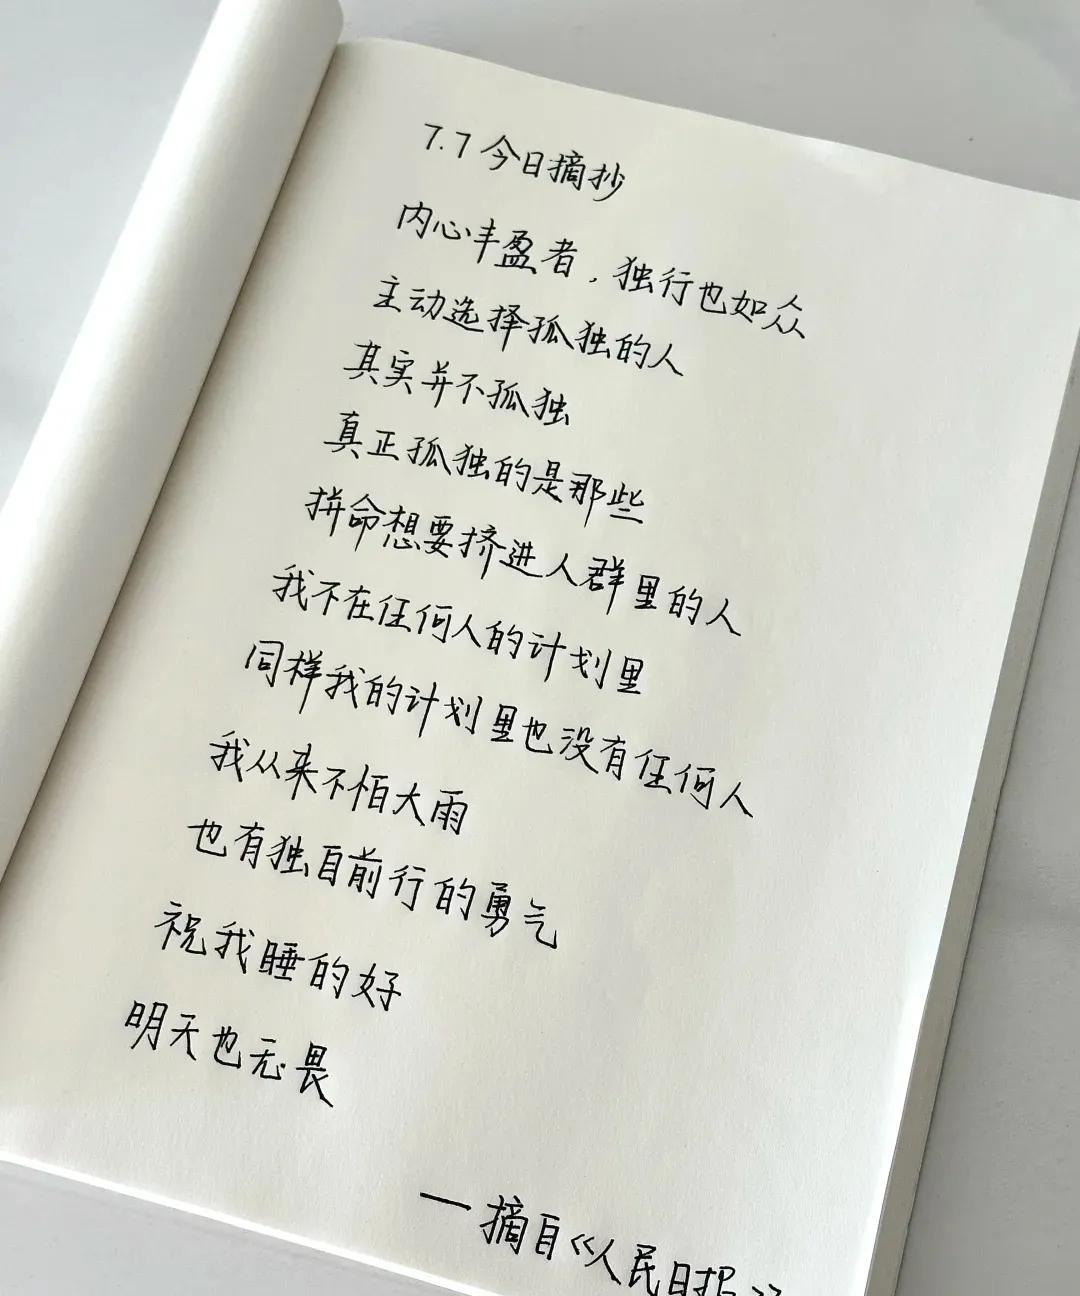 7.7 今日摘抄
内心丰盈者,独行也如众
主动选择孤独的人
其实并不孤独
真正孤独的是那些
拼命想要挤进人群里的人
我不在任何人的计划里
同样我的计划里也没有任何人
我从来不怕大雨
也有独自前行的勇气
祝我睡的好
明天也无畏
—摘自《人民日报》